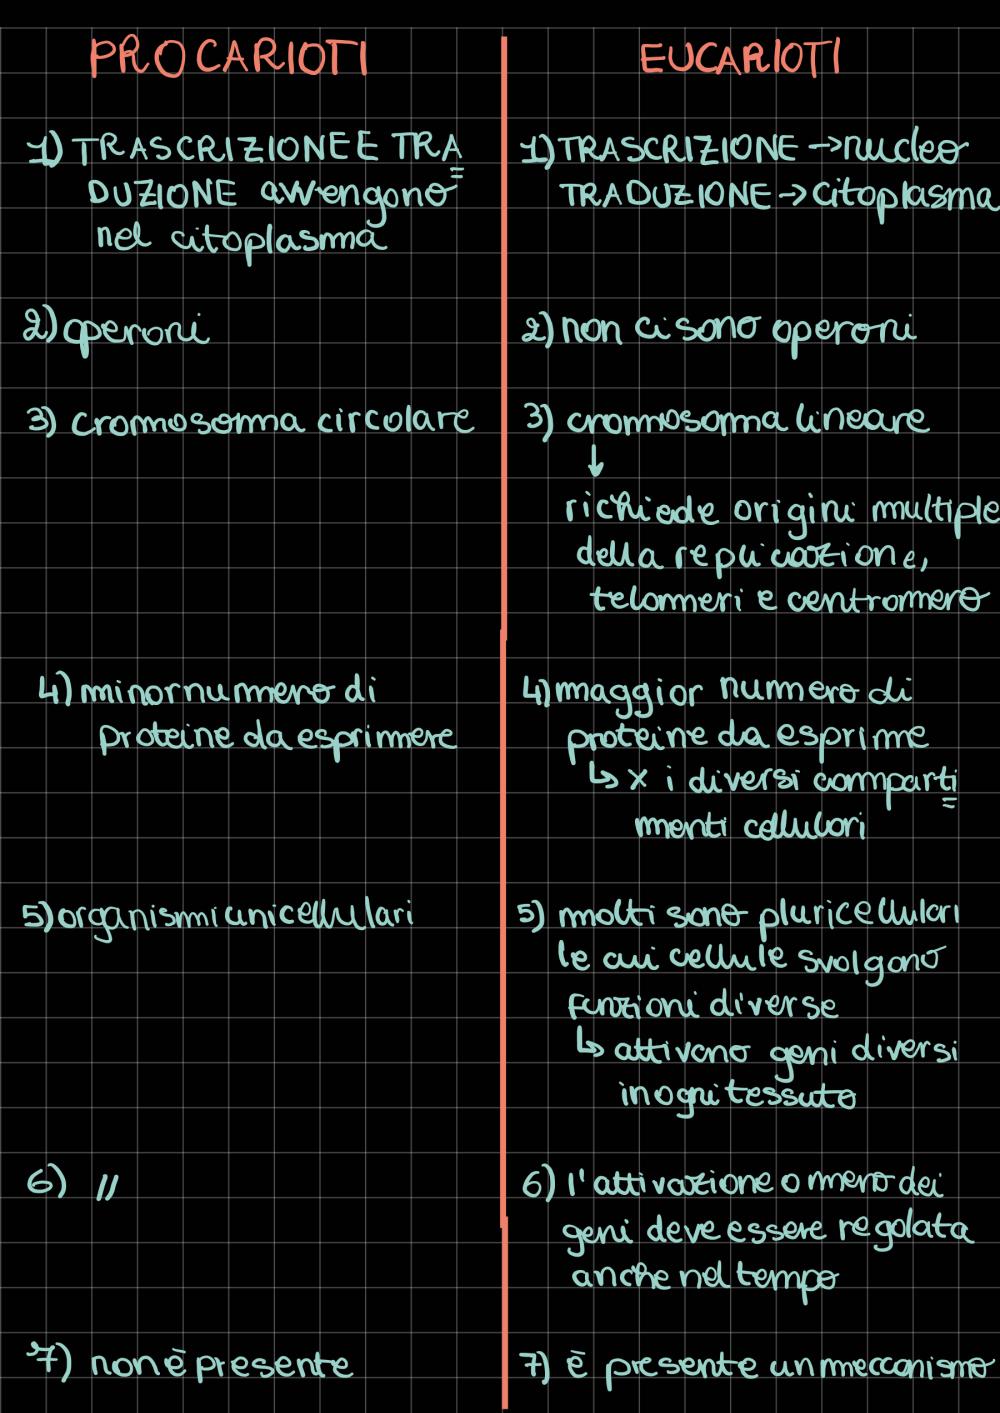 PROCARIOTI
1) TRASCRIZIONE E TRA
DUZIONE avvengono
nel citoplasma
2) operoni
3) cromosoma circolare
4) minor numero di
proteine da esprimere
5) organismi unicellulari
6) //
7) non è presente
EUCARIOTI
1) TRASCRIZIONE → nucleo
TRADUZIONE → citoplasma
2) non ci sono operoni
3) cromosoma lineare
↓
richiede origini multiple
della replicazione,
telomeri e centromero
4) maggior numero di
proteine da esprime
↳ x i diversi comparti
menti cellulari
5) molti sono pluricellulari
le cui cellule svolgono
funzioni diverse
↳ attivano geni diversi
in ogni tessuto
6) l'attivazione o meno dei
geni deve essere regolata
anche nel tempo
7) è presente un meccanismo